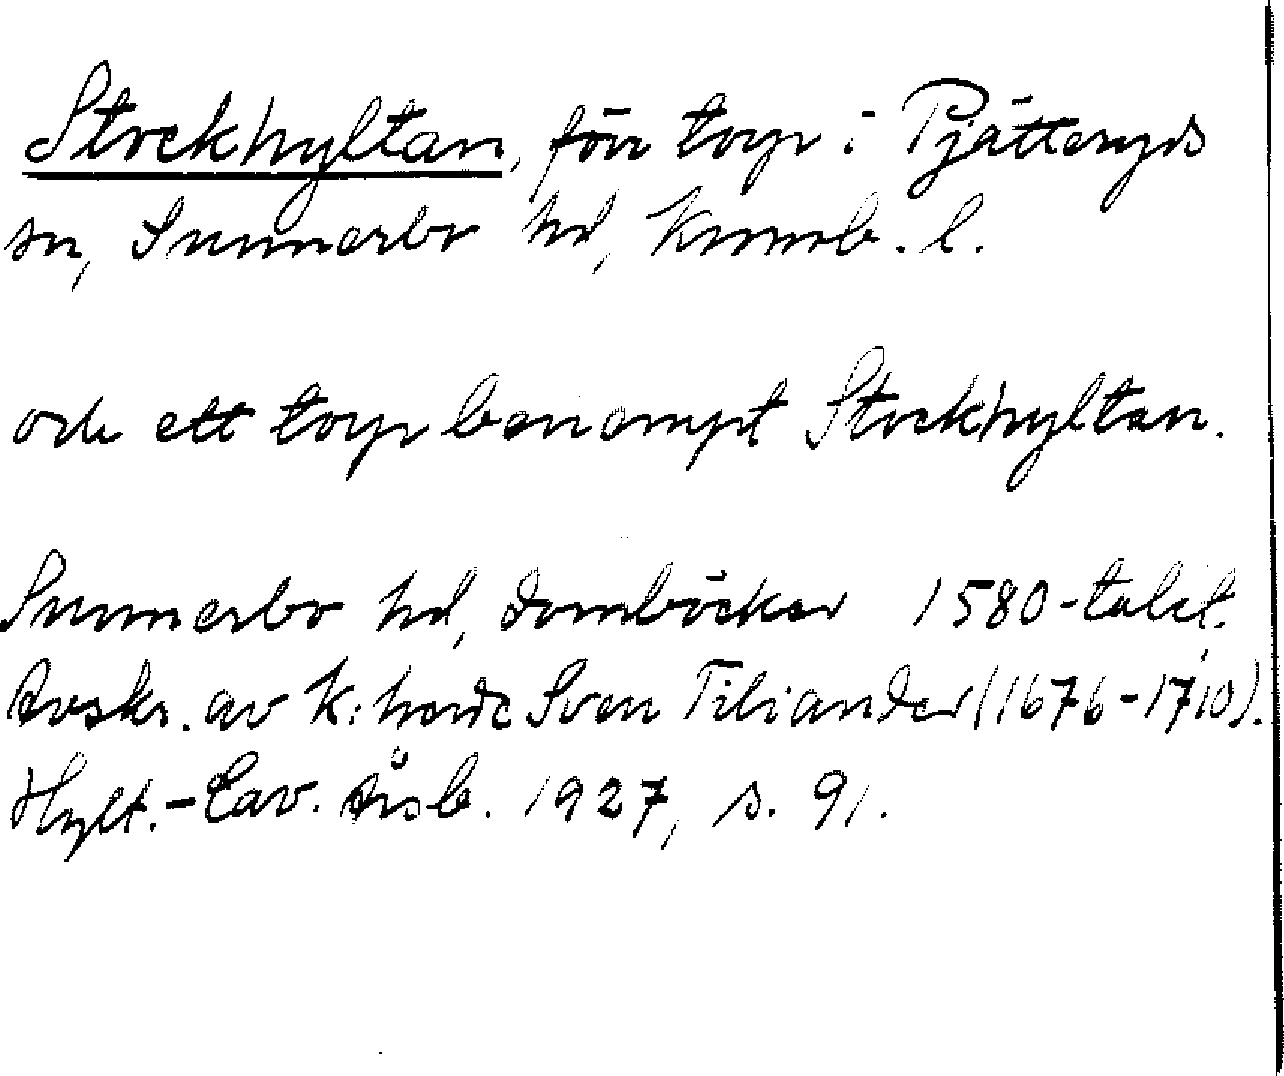 Stockhyltan, förr torp i Pjätteryds
sn, Sunnerbo hd, Kronob. l.
och ett torp benompt Stockhyltan.
Sunnerbo hd, domböcker 1580-talet.
Avskr. av k:herde Sven Tiliander (1676-1710).
Hylt.-Cav. Årsb. 1927, s. 91.